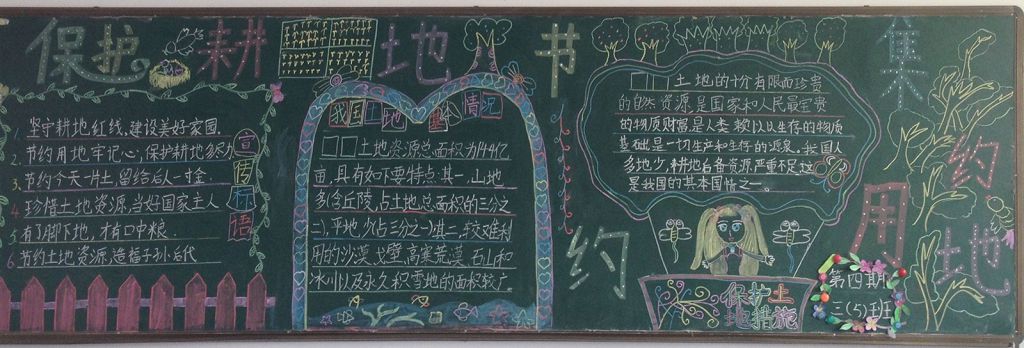 保护耕地 节约集约用地
1. 坚守耕地红线,建设美好家园.
2. 节约用地牢记心,保护耕地多尽力
3. 节约今天一片土,留给后人一寸金
4. 珍惜土地资源,当好国家主人
5. 有了脚下地,才有口中粮.
6. 节约土地资源,造福子孙后代
宣传标语
我国土地基本情况
□□土地资源总面积为144亿
亩,具有如下要特点:其一,山地
多(含丘陵,占土地总面积的三分之
二),平地少(占三分之一)其二,较难利
用的沙漠、戈壁、高寒荒漠、石山和
冰川以及永久积雪地的面积较广。
□□土地的十分有限而珍贵
的自然资源,是国家和人民最宝贵
的物质财富是人类赖以以生存的物质
基础是一切生产和生存的源泉。我国人
多地少,耕地后备资源严重不足,这
是我国的其本国情之一。
保护土
地措施
第四期
三(5)班